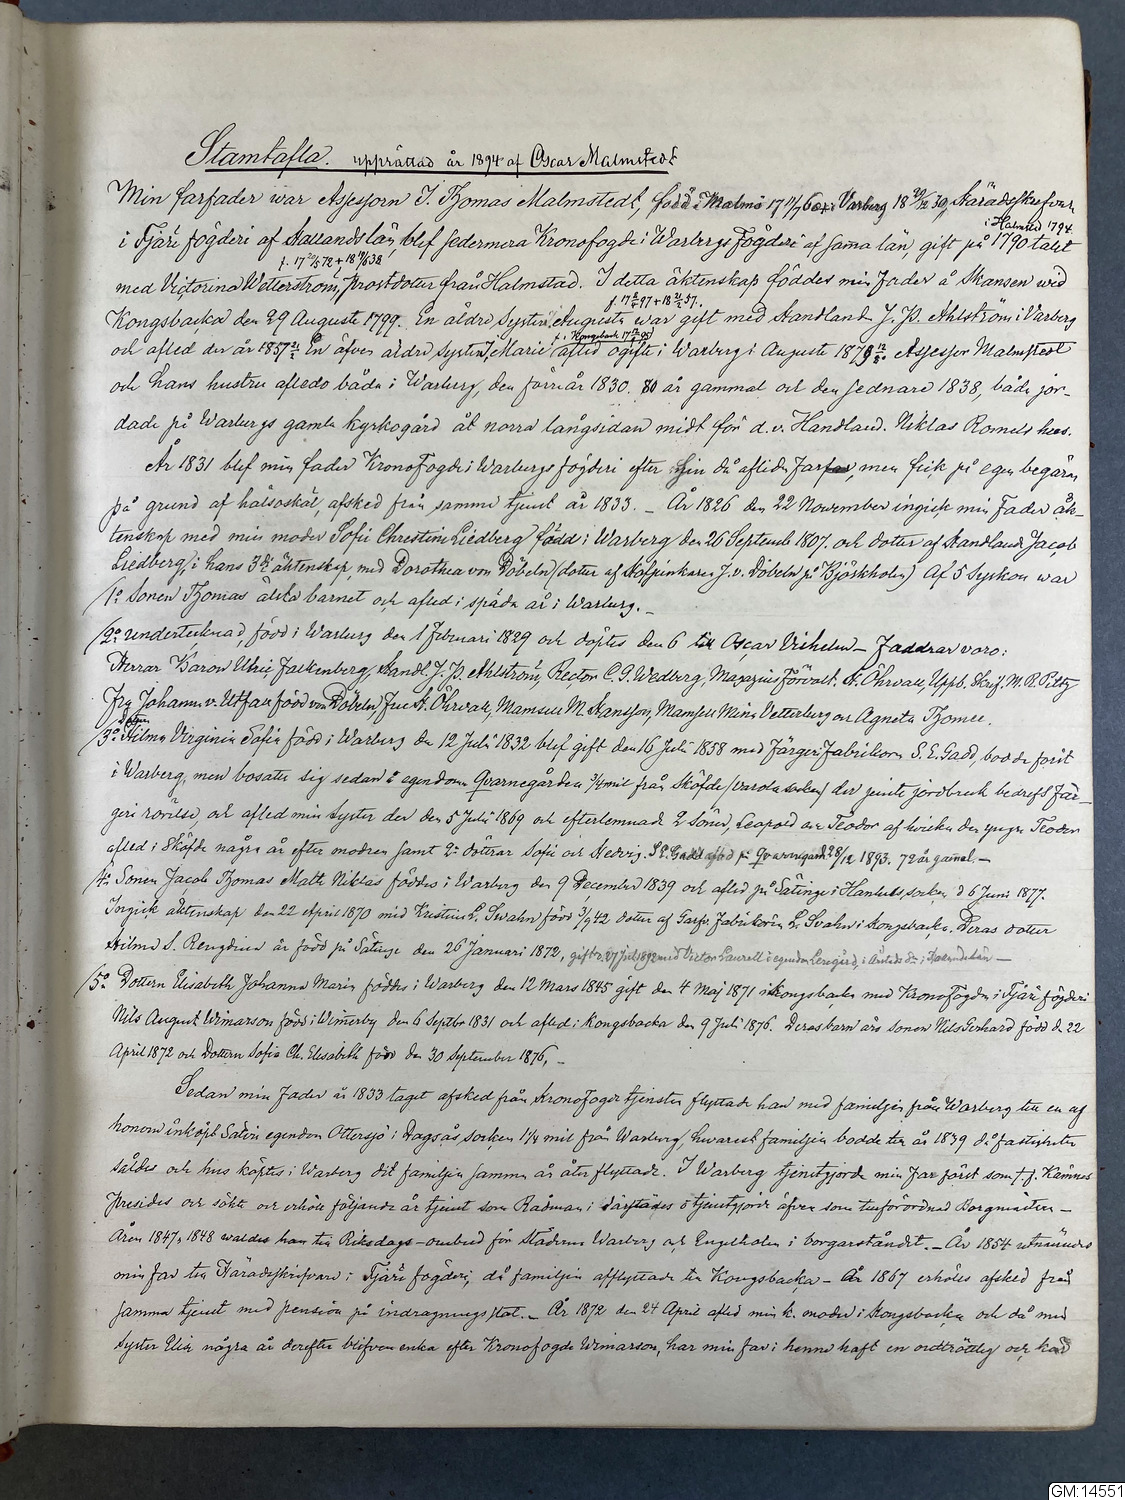 Stamtafla. upprättad år 1894 af Oscar Malmstedt
Min farfader war Assessorn J. Thomas Malmstedt, född i Malmö 17 11/7 60 + i Varberg 18 29/12 30, Häradsskrifvare
i Halmstad 1794.
i Fjäre fögderi af Hallands län, blef sedermera Kronofogde i Warbergs Fögderi af samma län, gift på 1790 talet
f. 17 72 + 18 38
med Victorina Wetterström, prostdotter från Halmstad. I detta äktenskap föddes min Fader å Skansen wid
f. 17 97 + 18 57.
Kongsbacka den 29 Augusti 1799. En äldre Syster, Augusta war gift med Handland. J. P. Ahlström i Varberg
f. i Kongsbacka 17 95
och afled der år 1857 En äfven äldre Syster, Marie afled ogift i Warberg i Augusti 1879 Assessor Malmstedt
och hans hustru afledo båda i Warberg, den förre år 1830. 80 år gammal och den sednare 1838, båda jor-
dade på Warbergs gamla kyrkogård åt norra långsidan midt för d. v. Handland. Niklas Romels hus.
År 1831 blef min fader Kronofogde i Warbergs fögderi efter sin då aflidne farfar, men fick på egen begäran
på grund af hälsoskäl, afsked från samma tjenst år 1833. _ År 1826 den 22 November ingick min Fader äk-
tenskap med min moder Sofie Christine Liedberg född i Warberg den 26 Septemb 1807. och dotter af Handland. Jacob
Liedberg, i hans 3dje äktenskap, med Dorothea von Döbeln (dotter af Kaptenkaren J. v. Döbeln på Björkholm) Af 5 Syskon war
1o Sonen Thomas älsta barnet och afled i späda år i Warberg. _
2o undertecknad, född i Warberg den 1 Februari 1829 och döptes den 6 till Oscar Vilhelm _ Faddrar voro:
Herrar Baron Ulric Falkenberg, Handl. J. P. Ahlström, Rector C. G. Wedberg, Magazins Förvalt. A. Öhrvall, Uppb. Skrif. M. R. Piltz
Fru Johanna v. Utfall född von Döbeln, Frue A. Öhrvall, Mamsell M. Hansson, Mamsell Mina Vetterberg och Agneta Thomee.
Dottern
3o Hilma Virginia Sofia född i Warberg den 12 Juli 1832 blef gift den 16 Juli 1858 med Färgeri Fabrikören S. E. Gadd, bodde först
i Warberg, men bosatte sig sedan å egendomen Qvarnegården 3/4 mil från Sköfde (Varola socken) der jemte jordbruk bedrefs fär-
geri rörelse, och afled min syster der den 5 Juli 1869 och efterlemnade 2 Söner, Leopold och Teodor af hvilka den yngre Teodor
afled i Sköfde några år efter modren samt 2e döttrar Sofie och Hedvig. S. E. Gadd afled på Qvarnegård. 28/12 1893. 72 år gammal. _
4o Sonen Jacob Thomas Malte Niklas föddes i Warberg den 9 December 1839 och afled på Sätinge i Hanhals socken d 6 Juni 1877.
Ingick äktenskap den 22 April 1870 med Kristine L. Swahn född 3/9 42 dotter af Garfv. Fabrikören L. Svahn i Kongsbacka. Deras dotter
Hilma S. Rengdina är född på Sätinge den 26 Januari 1872, gift d. 27 juli 1892 med Victor Laurell i egendom Lexegård, i Årstads h. i Hallands län _
5o Dottern Elisabeth Johanna Maria föddes i Warberg den 12 Mars 1845 gift den 4 Maj 1871 i Kongsbacka med Kronofogden i Fjäre fögderi
Nils August Wimarson född i Wimerby den 6 Septbr 1831 och afled i Kongsbacka den 9 Juli 1876. Deras barn äro sonen Nils Gerhard född d. 22
April 1872 och Dottern Sofia Ch. Elisabeth född den 30 September 1876, _
Sedan min Fader år 1833 taget afsked från Kronofogde tjensten flyttade han med familjen från Warberg till en af
honom inköpt Säteri egendom Ottersjö i Dagsås socken 1 1/4 mil från Warberg, hwarest familjen bodde till år 1839 då fastigheten
såldes och hus köptes i Warberg dit familjen samma år åter flyttade. I Warberg tjenstgjorde min Far först som t. f. Kämnes
Presides och sökte och erhöll följande år tjenst som Rådman i därstädes o tjenstgjorde äfven som tillförordnad Borgmästare _
Åren 1847, 1848 waldes han till Riksdags-ombud för Städerna Warberg och Engelholm i borgarståndet. _ År 1854 utnämndes
min far till Häradsskrifvare i Fjäre fögderi, då familjen afflyttade till Kongsbacka _ År 1867 erhöles afsked från
samma tjenst med pension på indragningsstat. _ År 1872 den 24 April afled min k. moder i Kongsbacka och då min
Syster Elise några år derefter blifven enka efter Kronofogde Wimarson, har min far i henne haft en outtröttlig och
GM:14551